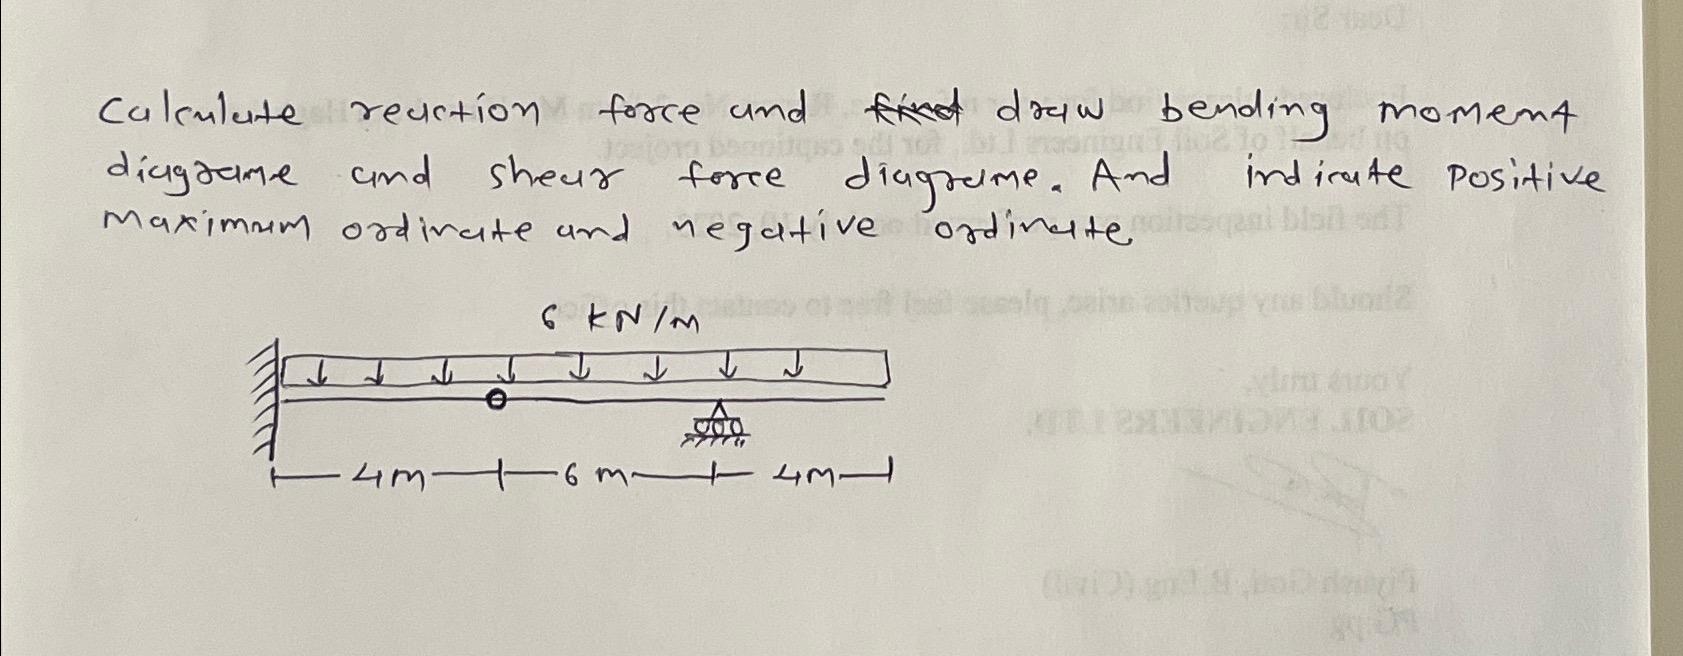 Calculate reaction force and find draw bending moment
diagrame and shear force diagrame. And indicate positive
maximum ordinate and negative ordinate
6 kN/m
4m 6 m 4m